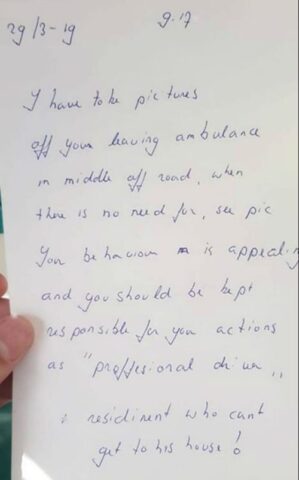 29/3-19 9.17
I have take pictures
off your leaving ambulance
in middle off road, when
there is no need for, see pic
Your behaviour is appealing
and you should be kept
responsible for your actions
as "proffesional driver"
residinent who cant
get to his house!